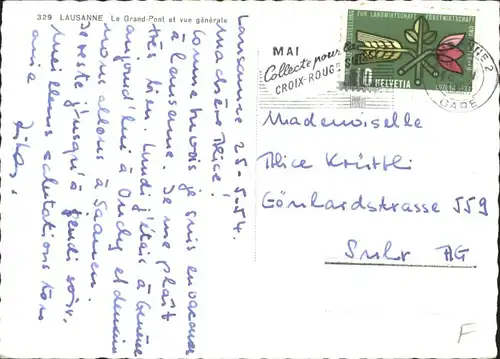 329 LAUSANNE Le Grand-Pont et vue générale
Lausanne 25-5-54.
Ma chère Alice!
Comme tu vois je suis en vacances
à Lausanne. Je me plaît
très bien. Lundi j'étais à Genève
aujourd'hui à Ouchy et demain
nous allons à Saanen.
Je reste j'usqu'à jeudi soir.
Meilleures salutations ton
amie
MAI
Collecte pour la
CROIX-ROUGE
LANDWIRTSCHAFT FORSTWIRTSCHAFT
10 HELVETIA
GARE
Mademoiselle
Alice Krüttli
Gönhardstrasse 559
Suhr AG
F